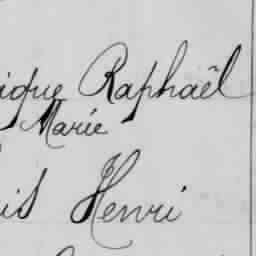 ique Raphaël
Marie
is Henri